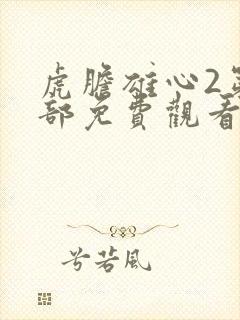 虎膽雄心2第
部免費觀看
兮若風